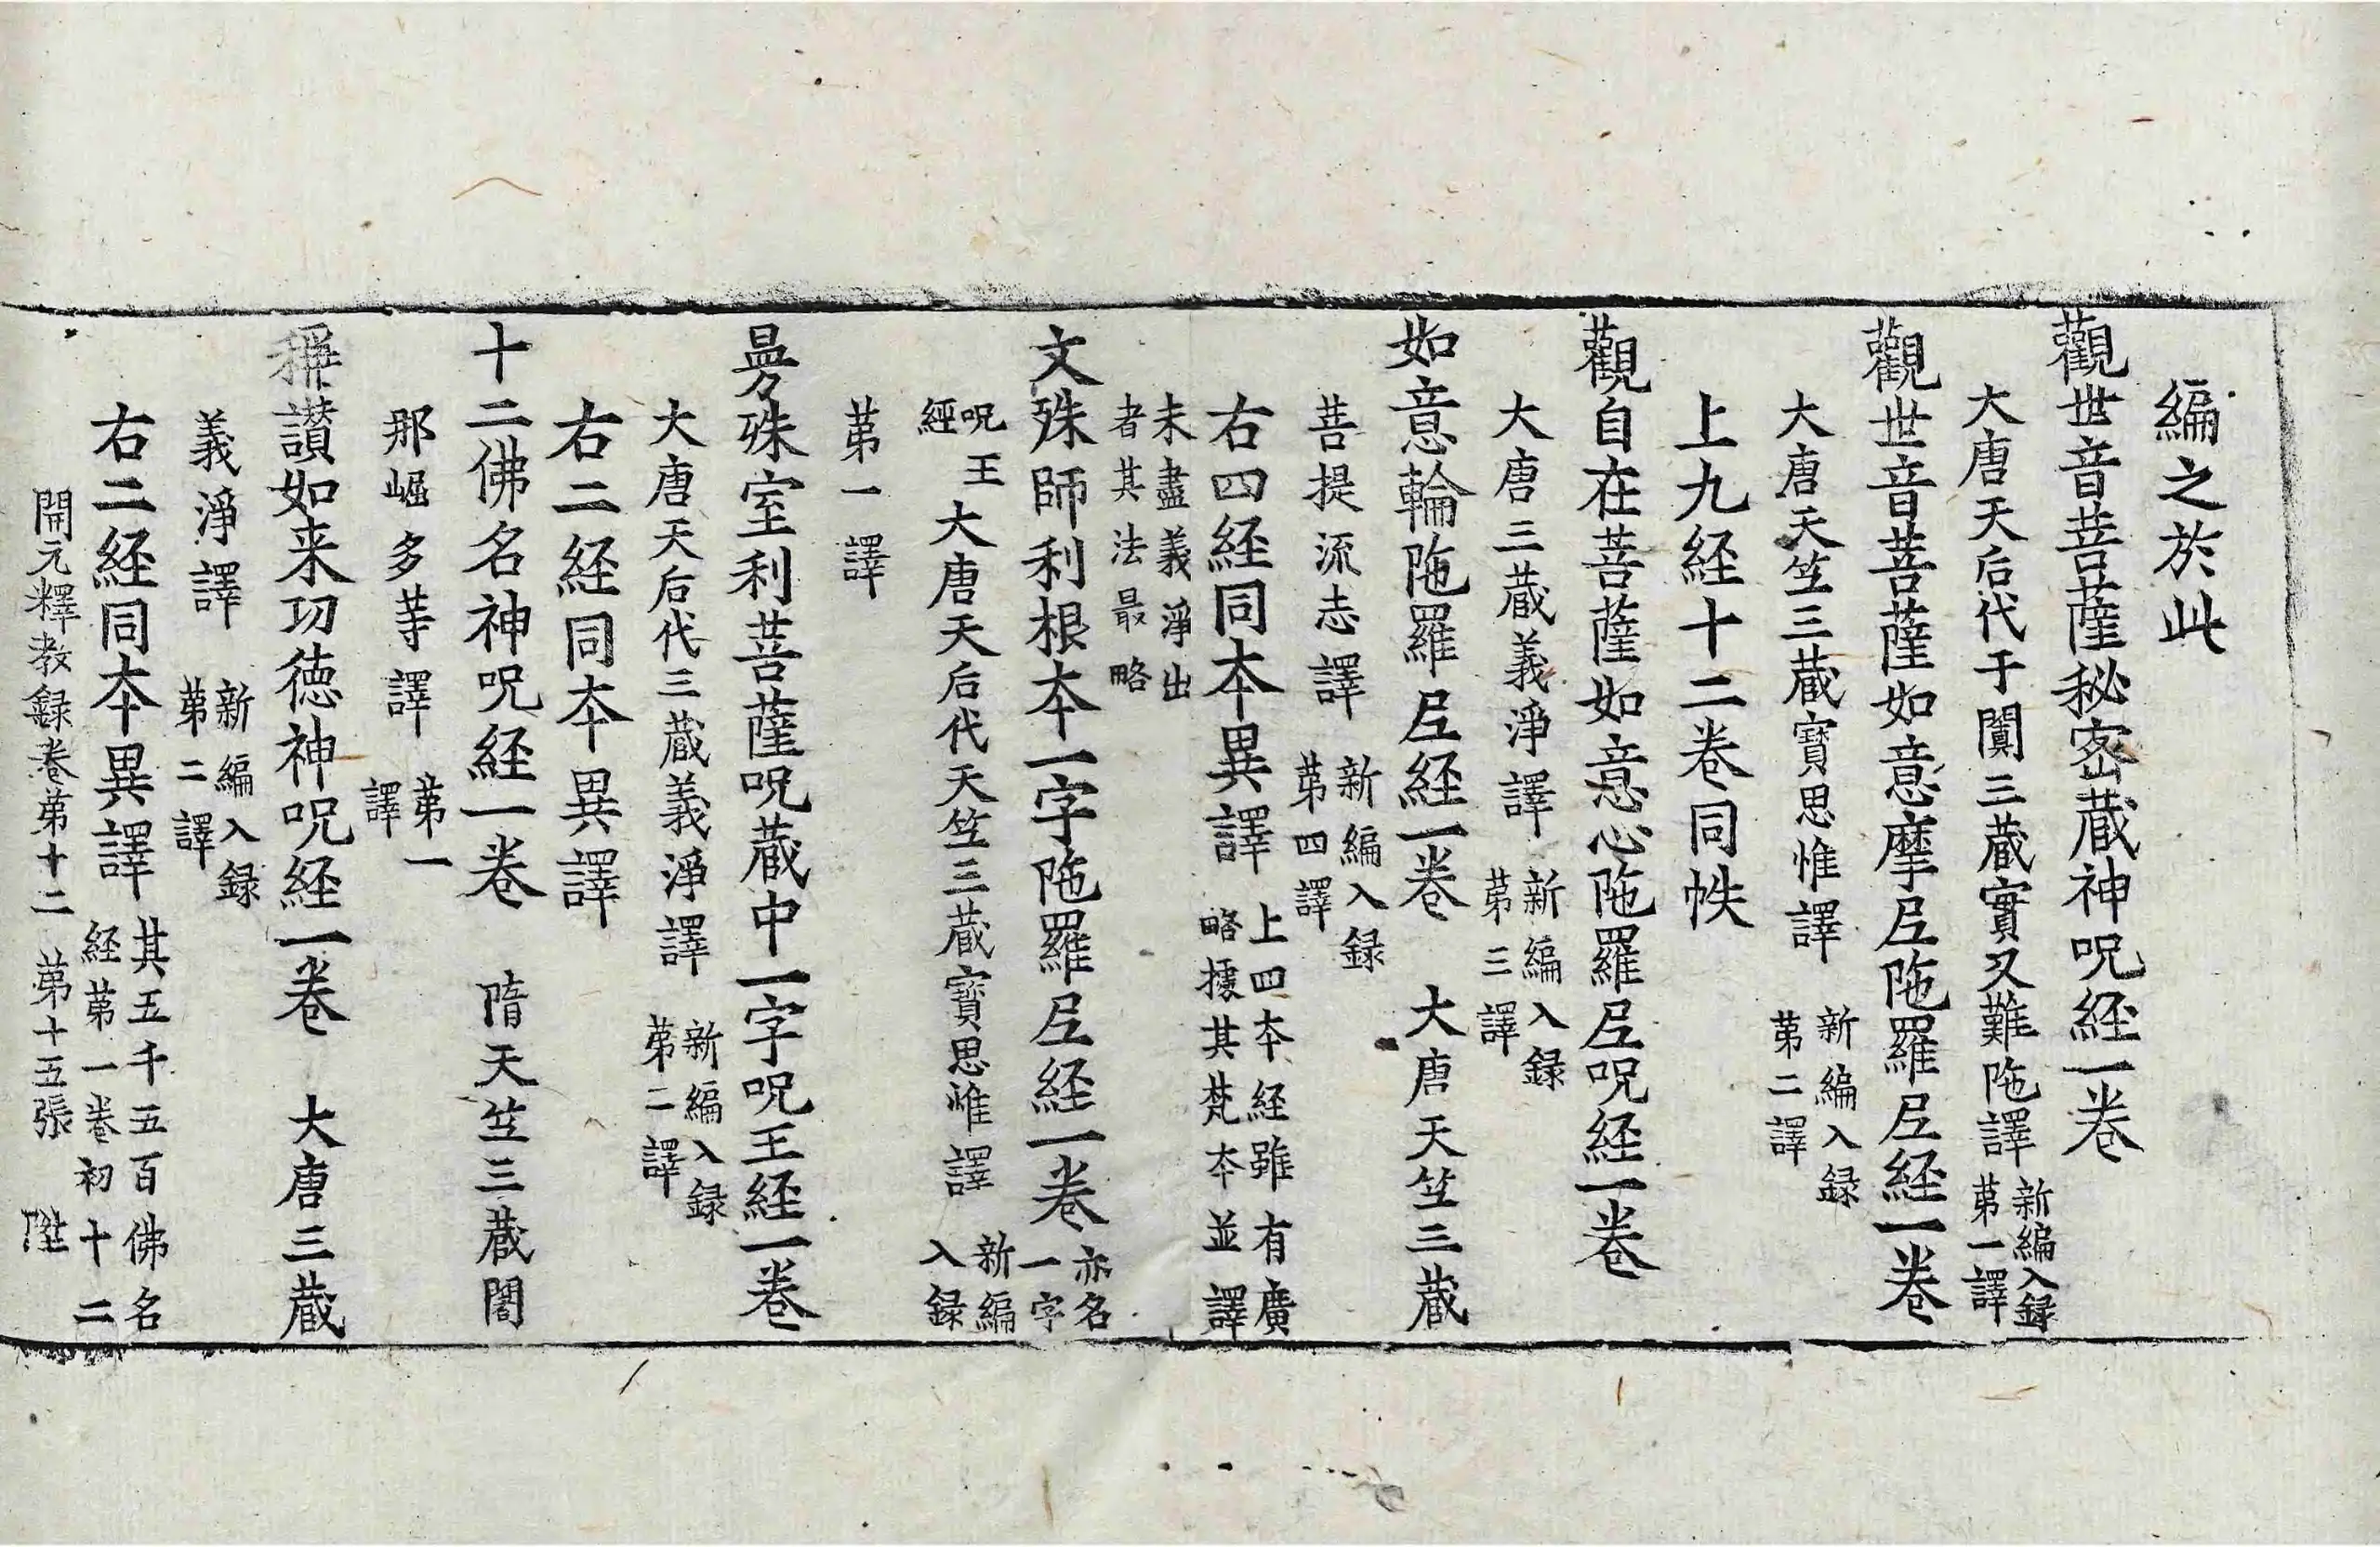 編之於此
觀世音菩薩秘密蔵神呪経一卷
大唐天后代于闐三蔵實叉難陁譯 新編入録
第一譯
觀世音菩薩如意摩尼陁羅尼経一卷
大唐天竺三蔵寶思惟譯 新編入録
第二譯
上九経十二卷同帙
觀自在菩薩如意心陁羅尼呪経一卷
大唐三蔵義淨譯 新編入録
第三譯
如意輪陁羅尼経一卷 大唐天竺三蔵
菩提流志譯 新編入録
第四譯
右四経同本異譯 上四本経雖有廣
略據其梵本並譯
未盡義淨出
者其法最略
文殊師利根本一字陁羅尼経一卷 亦名
一字
呪王
經 大唐天后代天竺三蔵寶思惟譯 新編
入録
第一譯
曼殊室利菩薩呪蔵中一字呪王経一卷
大唐天后代三蔵義淨譯 新編入録
第二譯
右二経同本異譯
十二佛名神呪経一卷 隋天竺三蔵闍
那崛多等譯 第一
譯
稱讃如来功徳神呪経一卷 大唐三蔵
義淨譯 新編入録
第二譯
右二経同本異譯 其五千五百佛名
経第一卷初十二
開元釋教録卷第十二 第十五張 陞